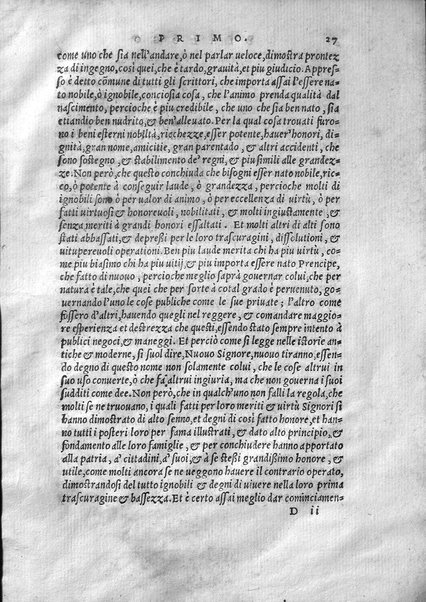 PRIMO. 27
come uno che sia nell'andare, ò nel parlar veloce, dimostra prontez
za di ingegno, così quei, che è tardo, grauità, et piu giudicio. Appres-
so è detto cõmune di tutti gli scrittori, che importa assai l'essere na-
to nobile, ò ignobile, conciosia cosa, che l'animo prenda qualità dal
nascimento, percioche è piu credibile, che uno che sia ben nato, sia
ettandio ben nudrito, & ben'alleuato. Per la qual cosa trouati furo-
no i beni esterni nobiltà, ricchezze, esser potente, hauer'honori, di-
gnità, gran nome, amicitie, gran parentado, & altri accidenti, che
sono sostegno, & stabilimento de' regni, & piu simili alle grandez-
ze. Non però, che questo conchiuda che bisogni esser nato nobile, ric-
co, ò potente à conseguir laude, ò grandezza, percioche molti di
ignobili sono ò per ualor di animo, ò per eccellenza di uirtù, ò per
fatti uirtuosi & honoreuoli, nobilitati, & molti ingiustamente, &
senza meriti à grandi honori essaltati. Et molti altri di alti sono
stati abbassati, & depressi per le loro trascuragini, dissolutioni, &
uitupereuoli operationi. Ben piu laude merita chi ha piu uirtù, co-
me piu biasimo chi ha piu uitij, & piu importa essere nato Prencipe,
che fatto di nuouo, percioche meglio saprà gouernar colui, che per
natura è tale, che quei che per sorte à cotal grado è peruenuto, go-
uernando l'uno le cose publiche come le sue priuate; l'altro come
fossero d'altri, hauendo quegli nel reggere, & comandare maggio-
re esperienza et destrezza che questi, essendo stato sempre intento à
publici negoci, & maneggi. Et perciò come si legge nelle istorie an-
tiche & moderne, si suol dire, Nuouo Signore, nuouo tiranno, essen-
do degno di questo nome non solamente colui, che le cose altrui in
suo uso conuerte, ò che fa' altrui ingiuria, ma che non gouerna i suoi
sudditi come dee. Non però, che in qualch'uno non falli la regola, che
molti se ne truouano, i quali fatti per loro meriti & uirtù Signori si
sono dimostrati di alto senno, et degni di così fatto honore, et han-
no tutti i posteri loro per fama illustrati, & dato alto principio, &
fondamento alle loro famiglie, & per conchiudere hanno apportato
alla patria, a' cittadini, a' suoi, & à se stessi grandissimo honore, &
utile, come molti ancora se ne ueggono hauere il contrario operato,
dimostrandosi del tutto ignobili & degni di uiuere nella loro prima
trascuragine & bassezza. Et è certo assai meglio dar cominciamen-
D ii